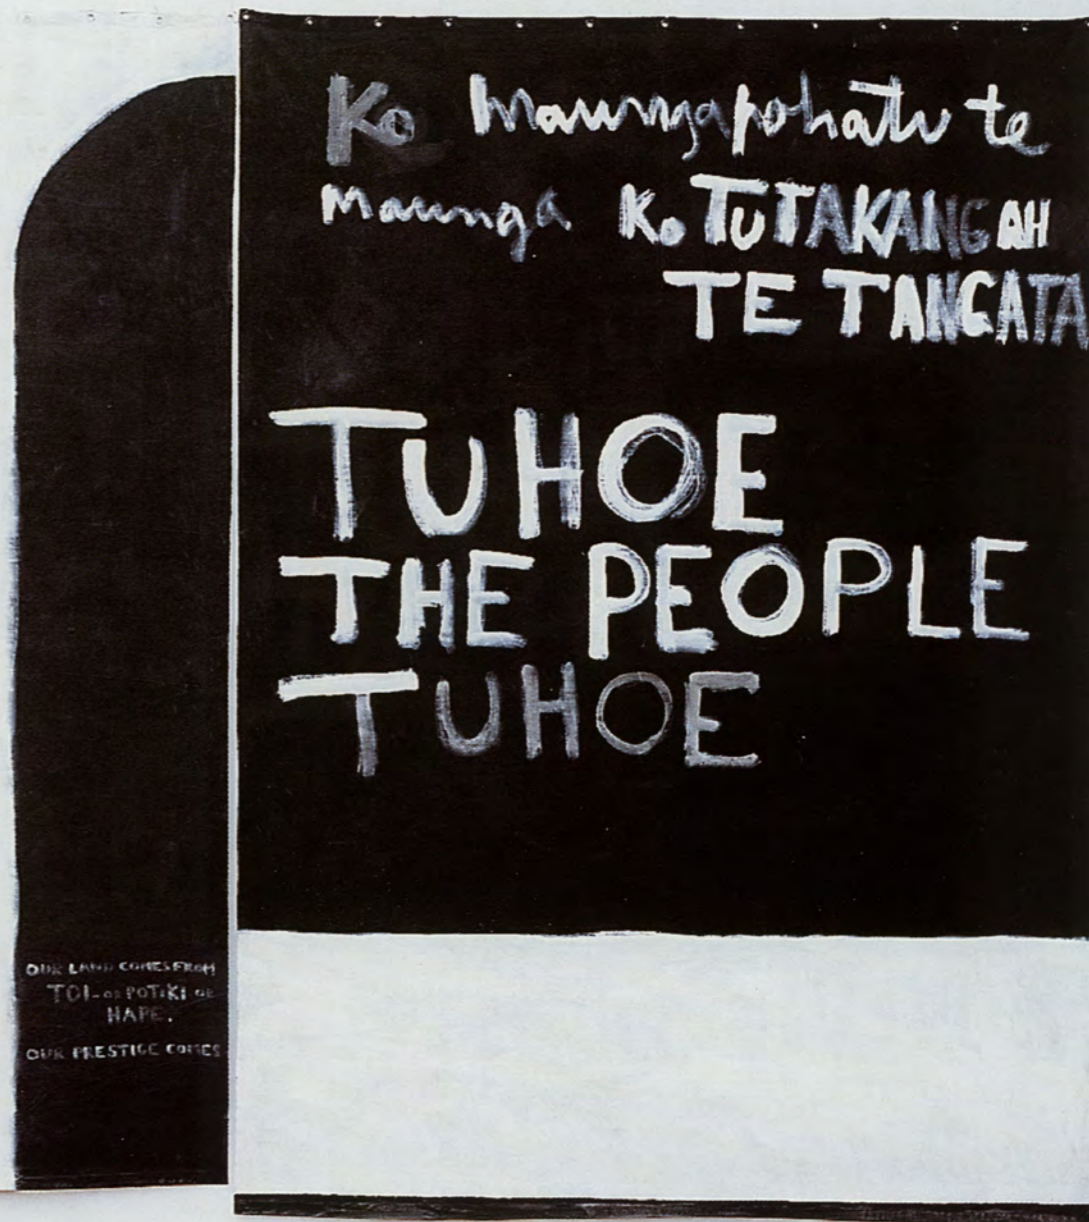 Ko Maungapohatu te
maunga Ko TUTAKANGAH
TE TANGATA
TUHOE
THE PEOPLE
TUHOE
OUR LAND COMES FROM
TOI-OR POTIKI OR
HAPE.
OUR PRESTIGE COMES